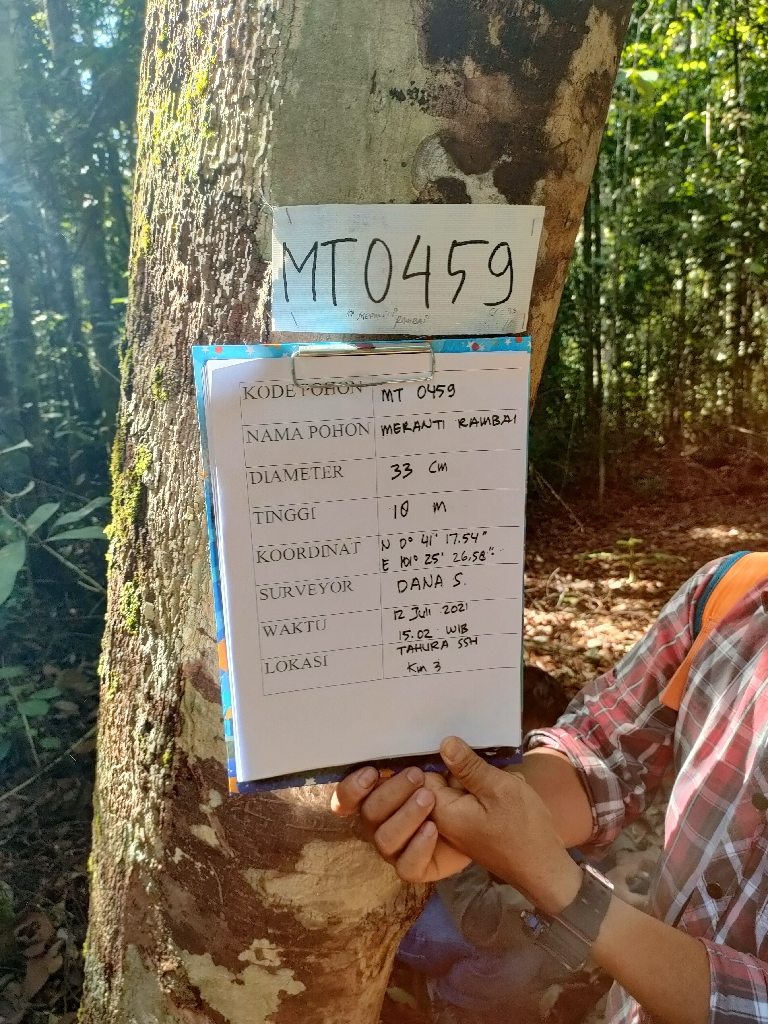 MT0459
MERANTI RAMBAI
KODE POHON MT 0459
NAMA POHON MERANTI RAMBAI
DIAMETER 33 cm
TINGGI 10 m
KOORDINAT N 0° 41' 17.54"
E 101° 25' 26.58"
SURVEYOR DANA S.
WAKTU 12 Juli 2021
15.02 WIB
LOKASI TAHURA SSH
Km 3